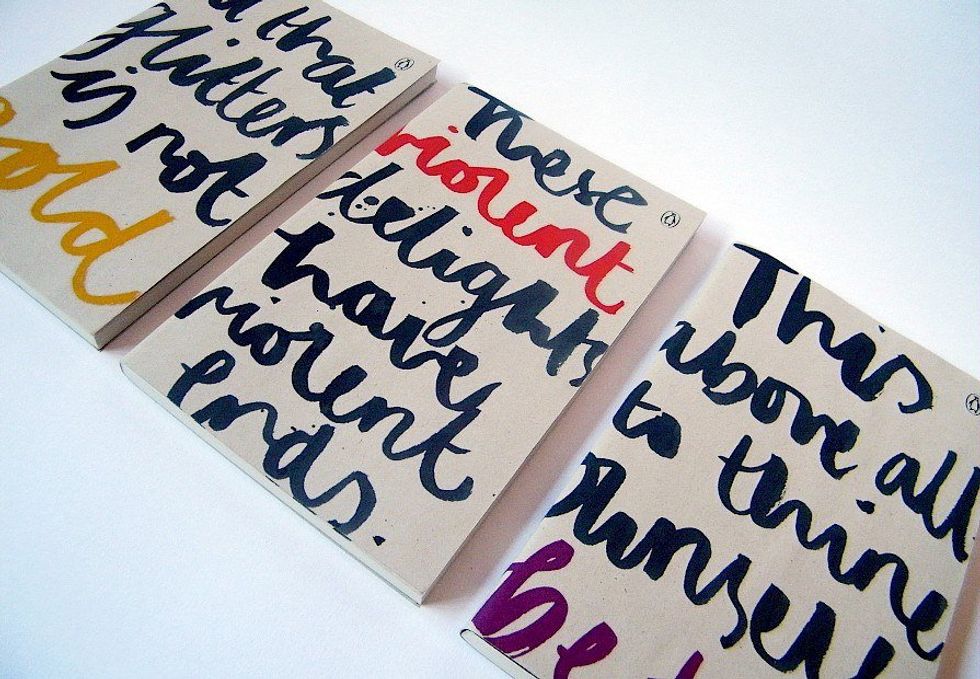 that
glitters
is not
gold
These
violent
delights
have
violent
Ends.
This
above all
to thine
ownself
be